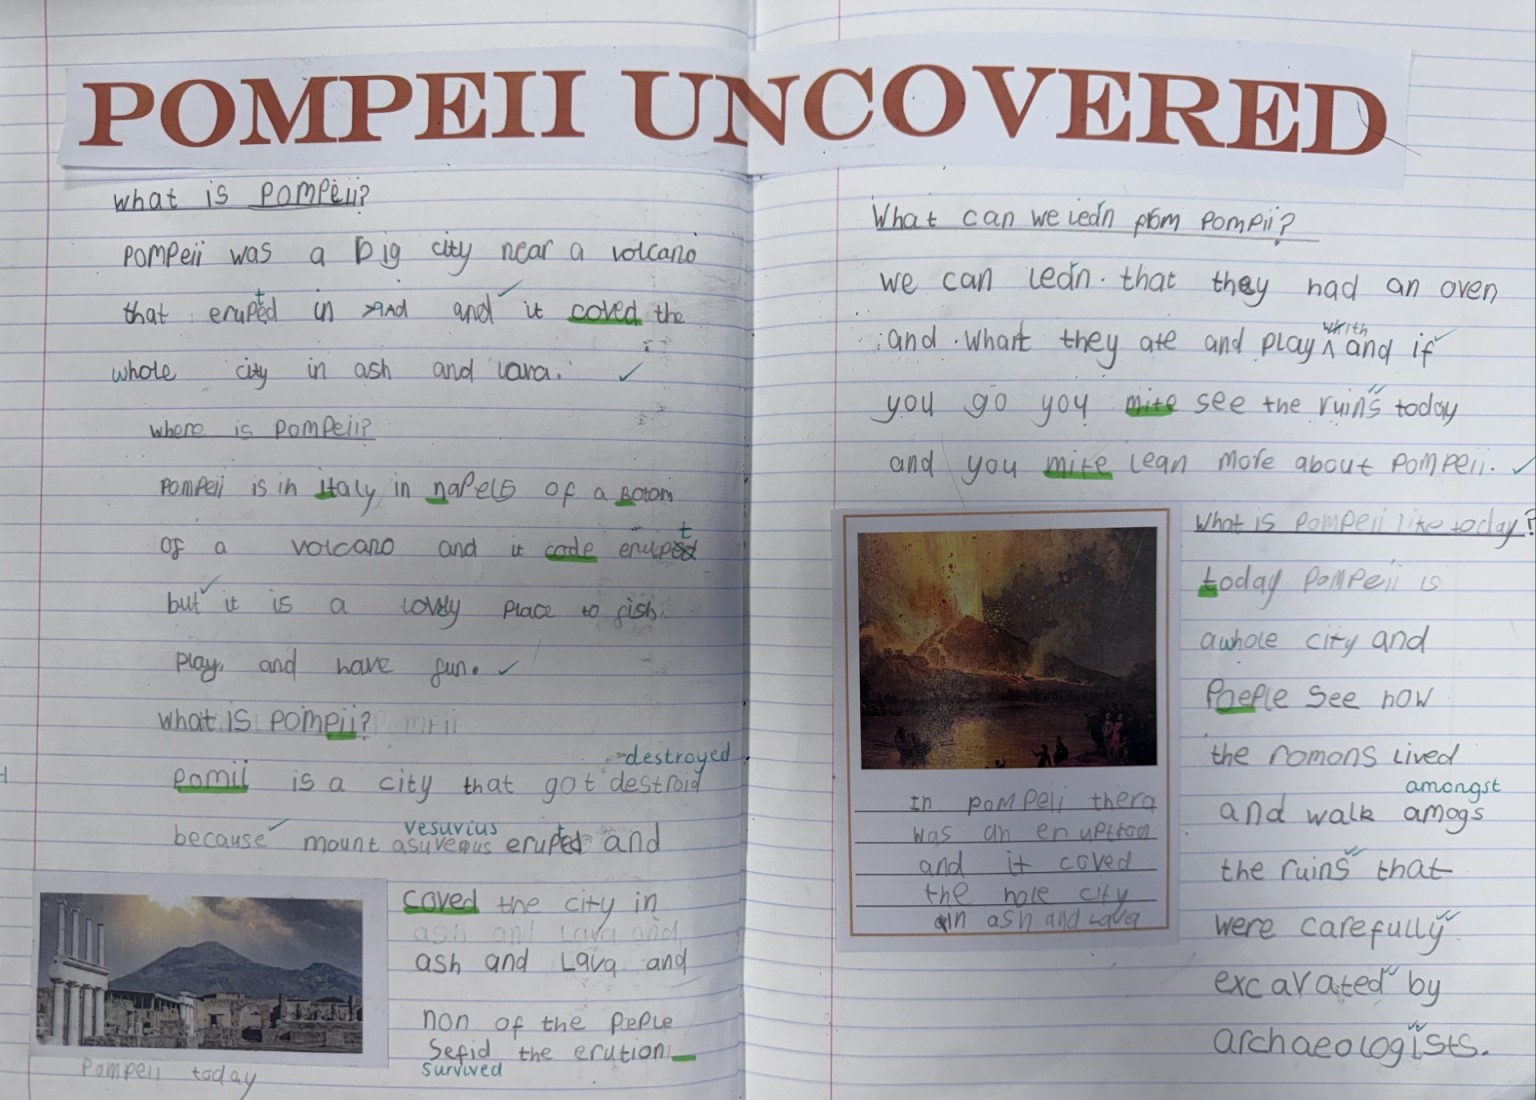 POMPEII UNCOVERED
what is pompeii?
pompeii was a big city near a volcano
that erupted in and it coved the
whole city in ash and lava.
where is pompeii?
pompeii is in italy in napels of a Botom
of a volcano and it code erupt
but it is a lovly place to fish.
play, and have fun.
what is pompeii?
destroyed
pomii is a city that got destroid
vesuvius
because mount asuvenus erupted and
coved the city in
ash and lava and
ash and Lava and
non of the peple
Sefid the erution
survived
Pompeii today
What can we learn from Pompii?
we can learn. that they had an oven
with
and what they ate and play ^ and if
you go you mite see the ruins today
and you mite lean more about pompeii.
In pompeii thera
was an eruption
and it coved
the hole city
in ash and Lava
What is pompeii like today?
today pompeii is
awhole city and
Paeple see how
the romans lived
amongst
and walk amogs
the ruins that
were carefully
excavated by
archaeologists.